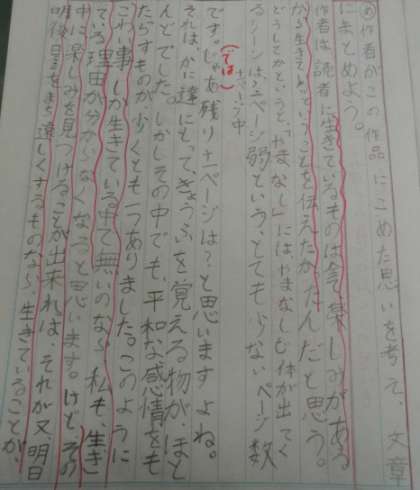 め 作者がこの作品にこめた思いを考え、文章
にまとめよう。
作者は読者に生きているものは全て楽しみがある
から生きているということを伝えたかったんだと思う。
どうしてかというと、「やまなし」にはやまなし自体が出てく
るシーンは、ページ弱という、とても少ないページ数
十一ページ中
です。じゃあ残り十ページは?と思いますよね。
(では)
それは、かに達にもって、きょうふを覚える物が、ほと
んどでした。しかしその中でも、平和な感情をも
たらすものが少くとも一つありました。このように
こわい事しか生きている中で無いのなら私も、生き
ている理由が分からなくなると思います。けど、その
中に楽しみを見つけることが出来れば、それが又、明日
明後日をまち遠しくするものなら生きていることが